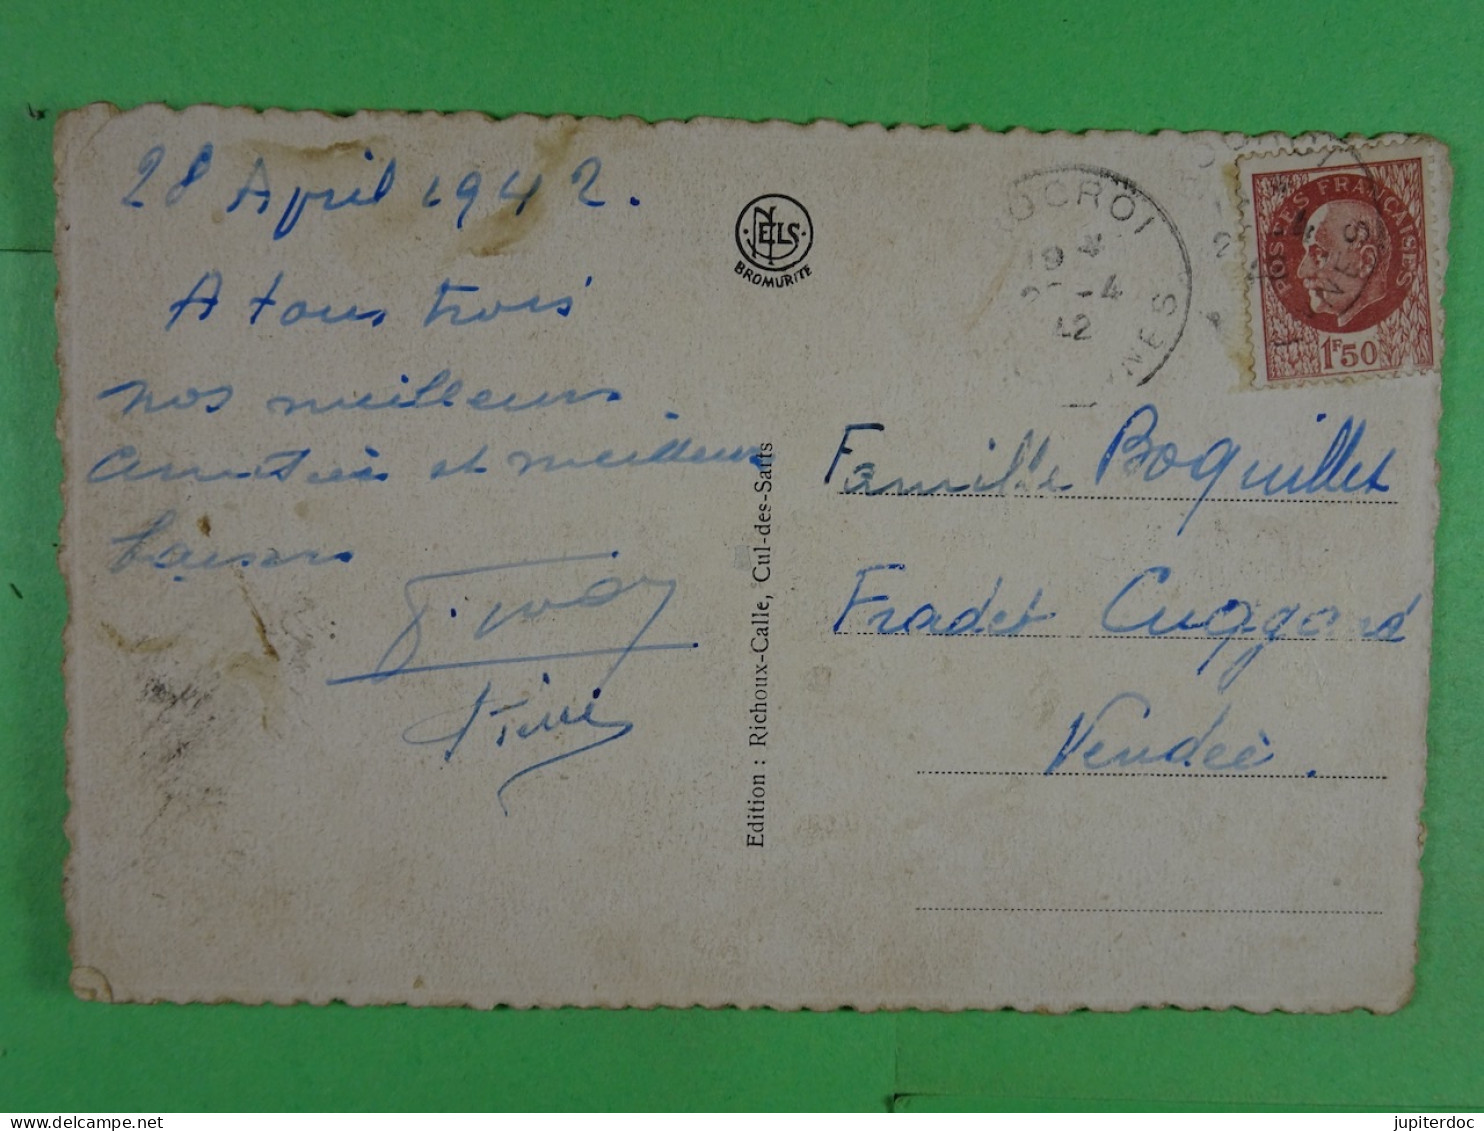 28 April 1942.
A tous trois
nos meilleurs
amitiés et meilleurs
baisers
Fifi
NELS
BROMURITE
Edition : Richoux-Calle, Cul-des-Sarts
OCROI
19
-4
42
NES
POSTES FRANÇAISES
1F50
Famille Boquillet
Fradet Cuggand
Vendeè.
www.delcampe.net
jupiterdoc